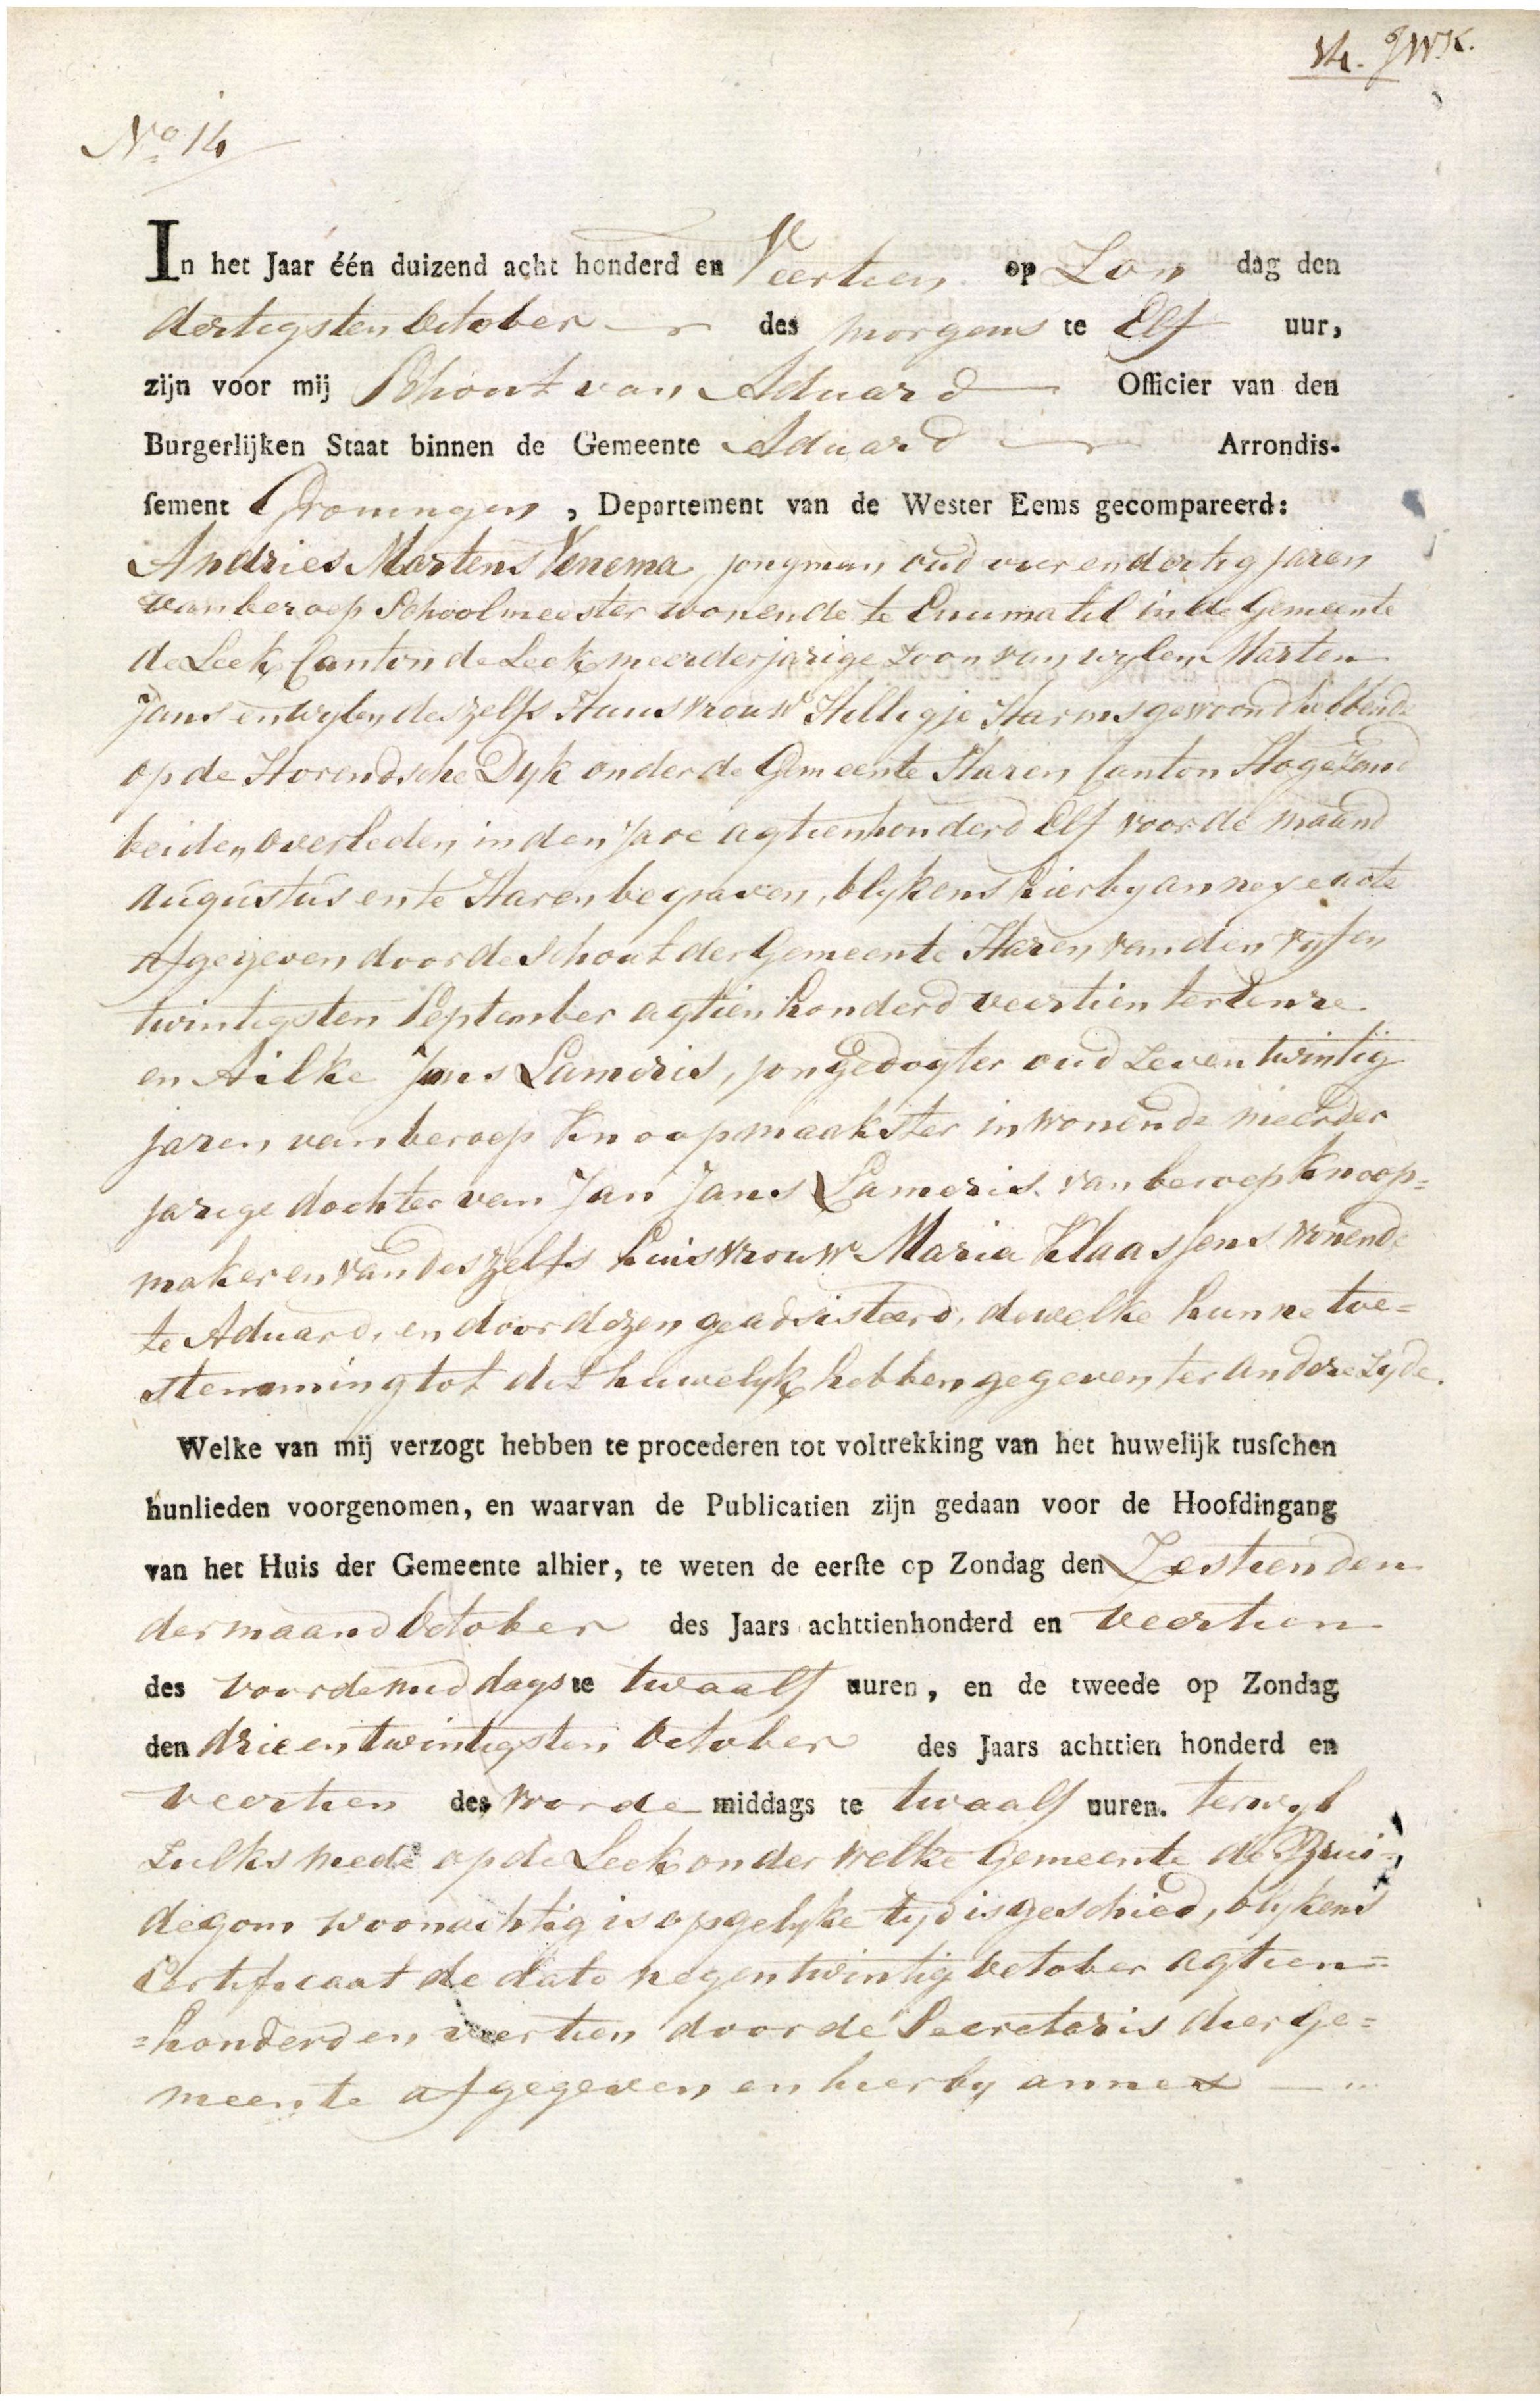 14. JWK.
No 14
In het Jaar één duizend acht honderd en Veertien op Zon dag den
dertigsten October des morgens te Elf uur,
zijn voor mij Schout van Aduard Officier van den
Burgerlijken Staat binnen de Gemeente Aduard Arrondis-
sement Groningen, Departement van de Wester Eems gecompareerd:
Andries Martens Venema, jongman oud vier en dertig jaren
van beroep Schoolmeester wonende te Enumatil in de Gemeente
de Leek Canton de Leek meerderjarige zoon van wylen Marten
Jans en wylen deszelfs Huisvrouw Hilligje Harms gewoond hebbende
op de Horendsche Dyk onder de Gemeente Haren Canton Hogezand
beiden overleden in den Jare agtienhonderd Elf voor de maand
augustus en te Haren begraven, blykens hierby annexe acte
afgegeven door de Schout der Gemeente Haren van den vyf en
twintigsten September agtien honderd veertien ter eenre
en Ailke Jans Lameris, jongedogter oud zeven twintig
jaren van beroep Knoopmaakster inwonende meerder
jarige dochter van Jan Jans Lameris van beroep Knoop=
maker en van deszelfs huisvrouw Maria Klaassens wonende
te Aduard, en door dezen geadsisteerd, dewelke hunne toe=
stemming tot dit huwelyk hebben gegeven ter andere zyde.
Welke van mij verzogt hebben te procederen tot voltrekking van het huwelijk tusschen
hunlieden voorgenomen, en waarvan de Publicatien zijn gedaan voor de Hoofdingang
van het Huis der Gemeente alhier, te weten de eerste op Zondag den Zestienden
der maand October des Jaars achttienhonderd en veertien
des voorde middags te twaalf uuren, en de tweede op Zondag
den drie en twintigsten October des Jaars achttien honderd en
veertien des voorde middags te twaalf uuren. terwyl
zulks mede op de Leek onder welke Gemeente de Brui=
degom woonachtig is op gelyke tyd is geschied, blykens
Certificaat de dato negentwintig October agtien=
=honderd en veertien door de Secretaris dier Ge=
meente afgegeven en hier by annex